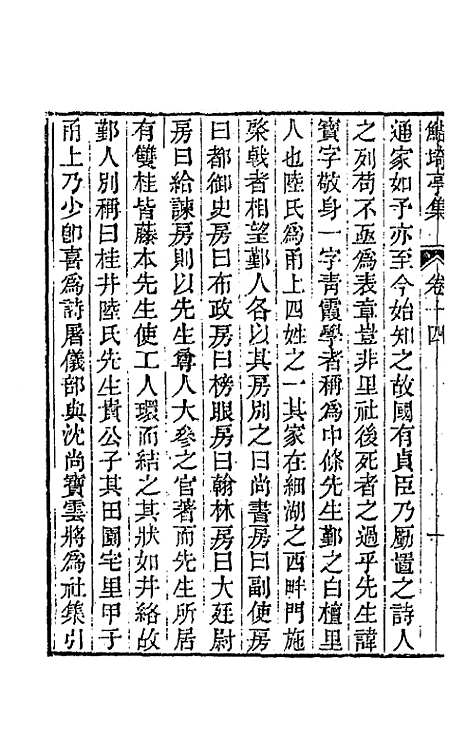 鮚埼亭集 卷十四 十
通家如予亦至今始知之故國有貞臣乃厪置之詩人
之列苟不亟為表章豈非里社後死者之過乎先生諱
寶字敬身一字青霞學者稱為中條先生鄞之白檀里
人也陸氏為甬上四姓之一其家在細湖之西畔門施
棨戟者相望鄞人各以其房別之曰尚書房曰副使房
曰都御史房曰布政房曰榜眼房曰翰林房曰大廷尉
房曰給諫房則以先生尊人大參之官著而先生所居
有雙桂皆藤本先生使工人環而結之其狀如井絡故
鄞人別稱曰桂井陸氏先生貴公子其田園宅里甲于
甬上乃少卽喜為詩屠儀部與沈尚寶雲將為社集引